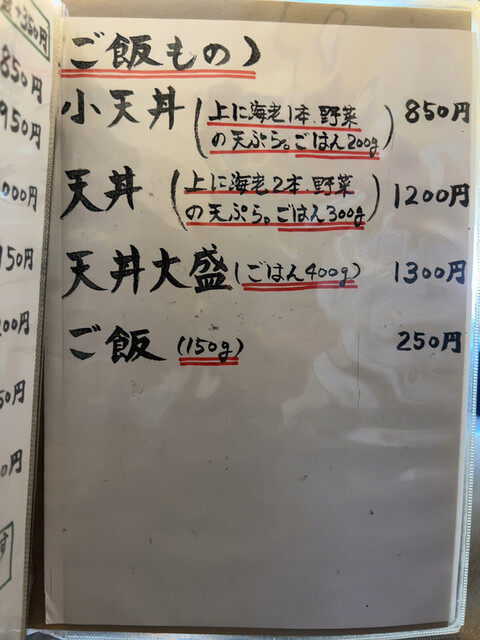 +350円
850円
950円
000円
150円
00円
50円
0円
す
ご飯もの)
小天丼(上に海老1本、野菜
の天ぷら。ごはん200g) 850円
天丼(上に海老2本、野菜
の天ぷら。ごはん300g) 1200円
天丼大盛(ごはん400g) 1300円
ご飯(150g) 250円